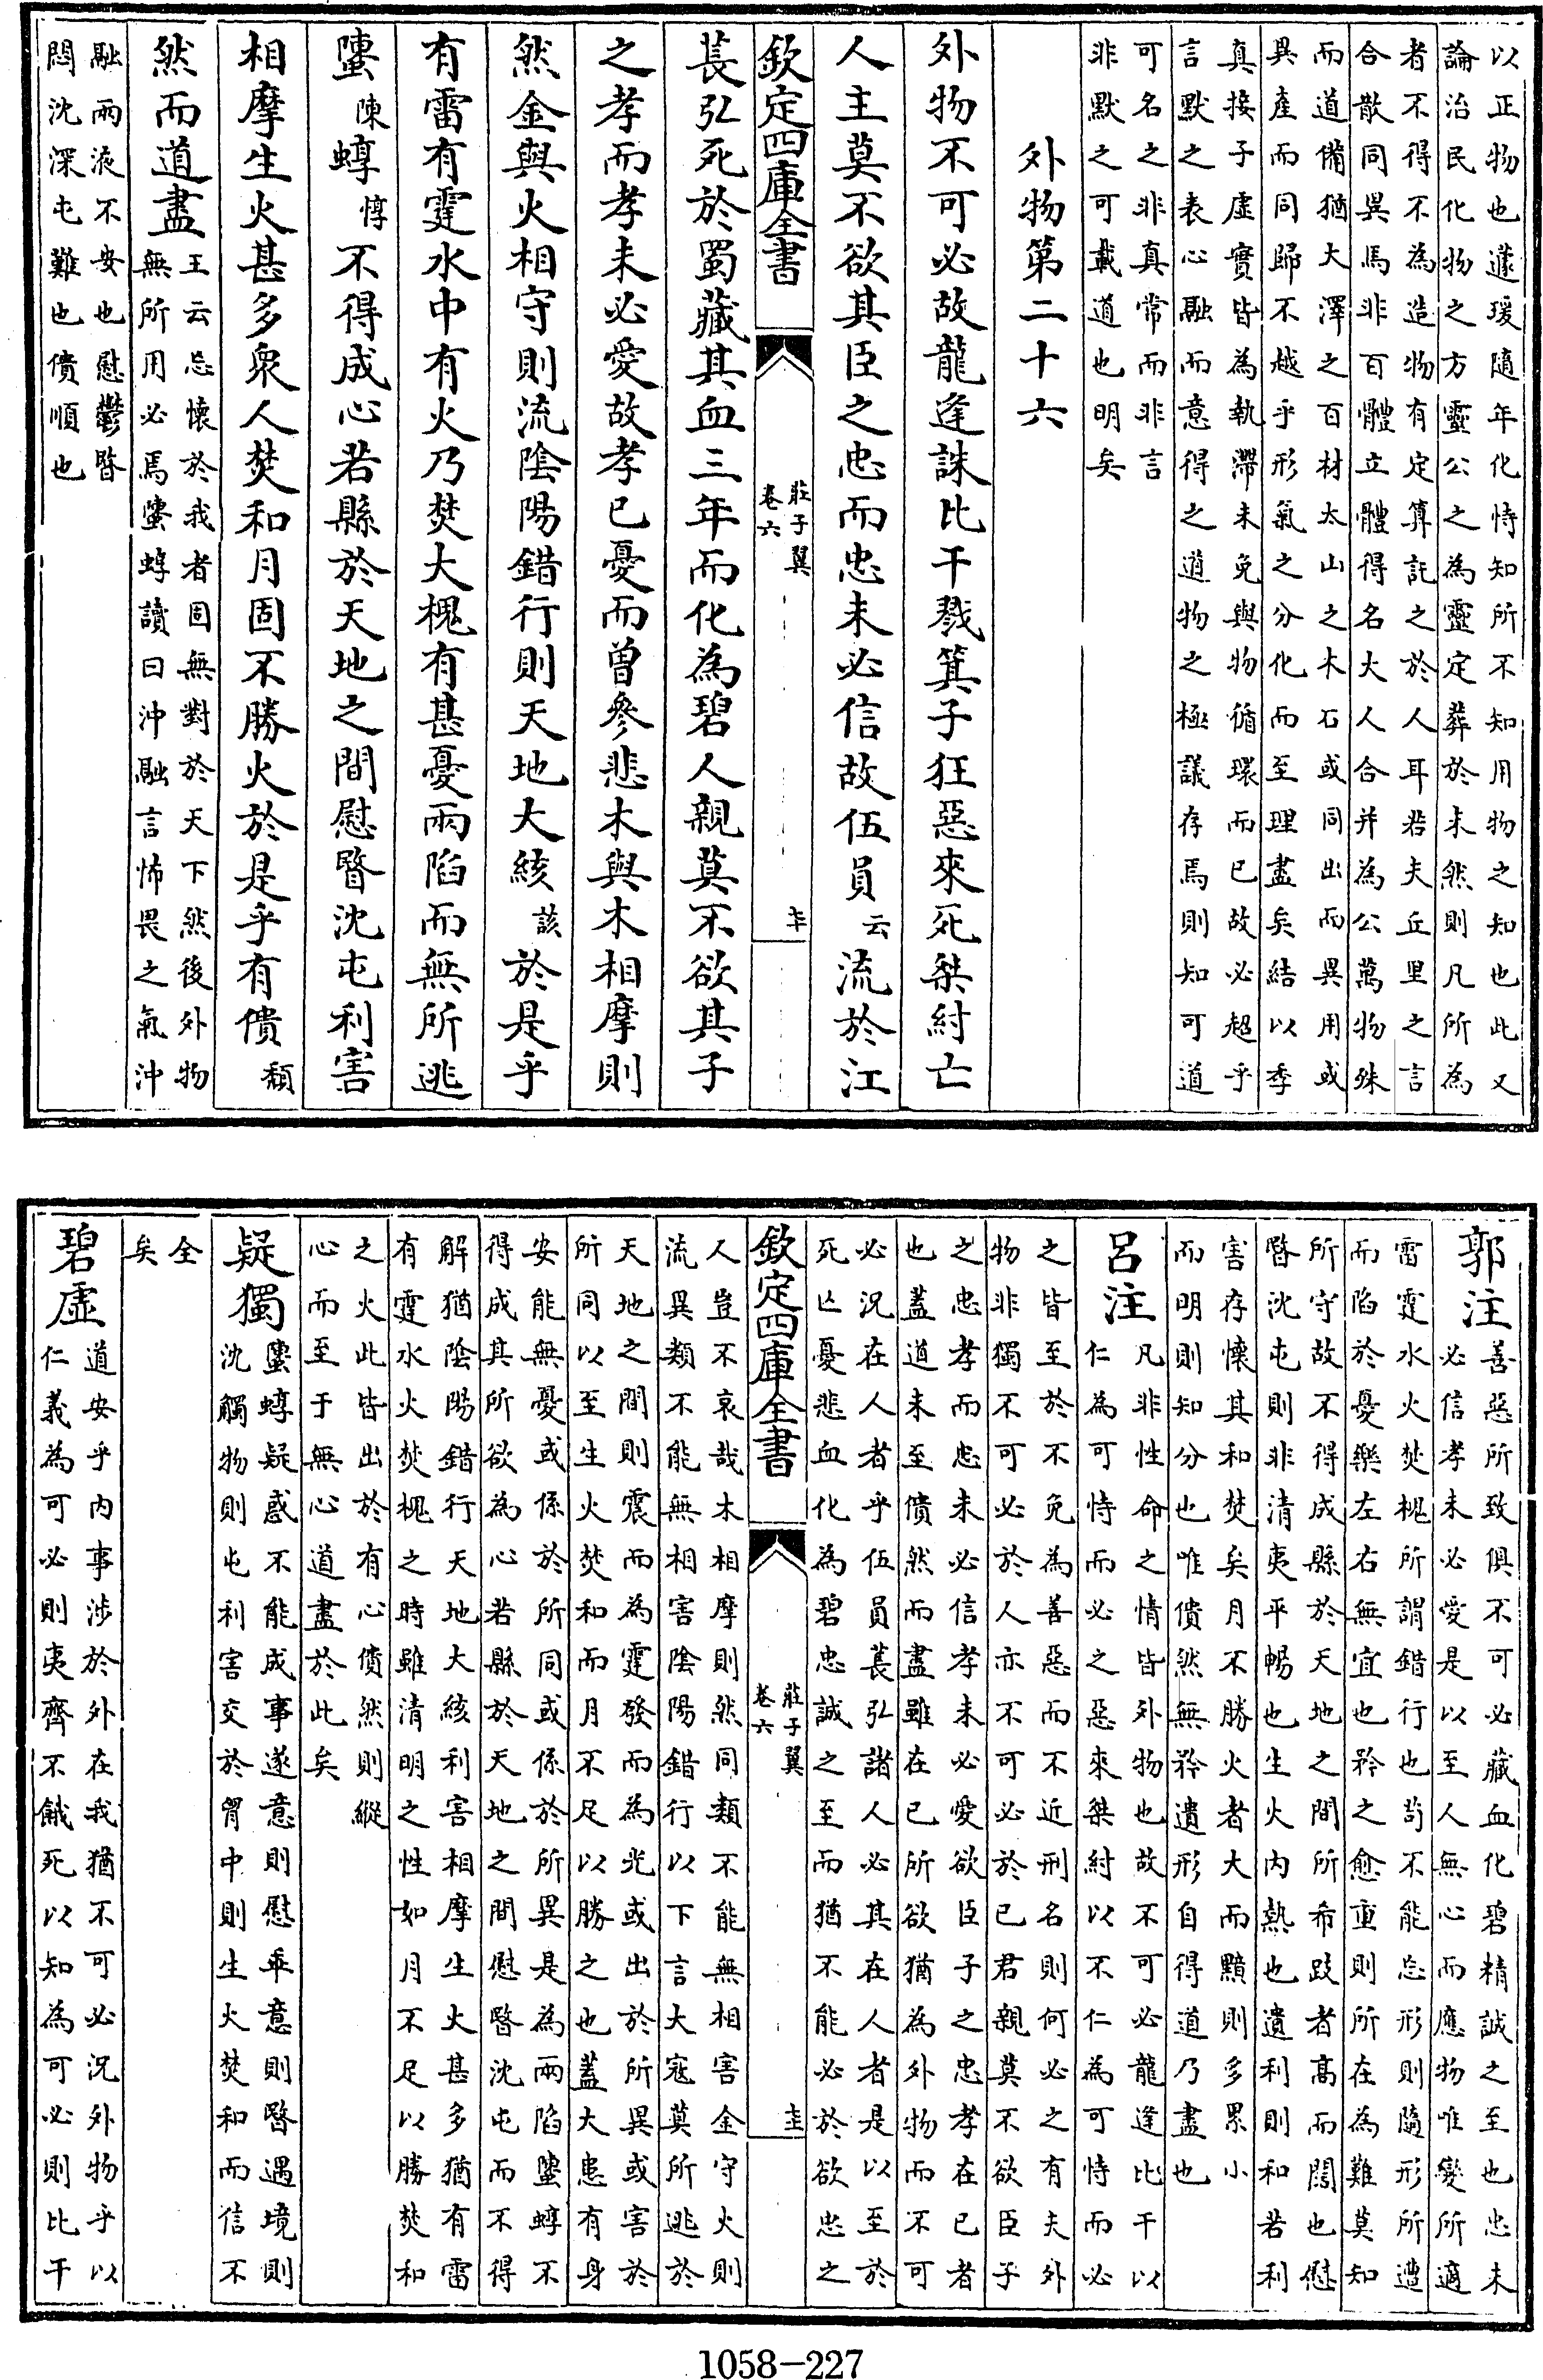 以正物也蘧瑗隨年化恃知所不知用物之知也此又
論治民化物之方靈公之為靈定葬於未然則凡所為
者不得不為造物有定算託之於人耳若夫丘里之言
合散同異馬非百體立體得名大人合并為公萬物殊
而道備猶大澤之百材太山之木石或同出而異用或
異產而同歸不越乎形氣之分化而至理盡矣結以季
真接子虛實皆為執滯未免與物循環而已故必超乎
言默之表心融而意得之道物之極議存焉則知可道
可名之非真常而非言
非默之可載道也明矣
外物第二十六
外物不可必故龍逢誅比干戮箕子狂惡來死桀紂亡
人主莫不欲其臣之忠而忠未必信故伍員云流於江
欽定四庫全書
莊子翼
卷六
萇弘死於蜀藏其血三年而化為碧人親莫不欲其子
之孝而孝未必愛故孝已憂而曾參悲木與木相摩則
然金與火相守則流陰陽錯行則天地大絯該於是乎
有雷有霆水中有火乃焚大槐有甚憂兩陷而無所逃
螴陳蜳惇不得成心若縣於天地之間慰暋沈屯利害
相摩生火甚多衆人焚和月固不勝火於是乎有僓頹
然而道盡
王云忘懷於我者固無對於天下然後外物
無所用必焉螴蜳讀曰沖融言怖畏之氣沖
融兩液不安也慰鬱暋
悶沈深屯難也僓順也
郭注
善惡所致俱不可必藏血化碧精誠之至也忠未
必信孝未必愛是以至人無心而應物唯變所適
雷霆水火焚槐所謂錯行也苟不能忘形則隨形所遭
而陷於憂樂左右無宜也矜之愈重則所在為難莫知
所守故不得成縣於天地之間所希跂者高而闊也慰
暋沈屯則非清夷平暢也生火內熱也遺利則和若利
害存懷其和焚矣月不勝火者大而黯則多累小
而明則知分也唯僓然無矜遺形自得道乃盡也
呂注
凡非性命之情皆外物也故不可必龍逢比干以
仁為可恃而必之惡來桀紂以不仁為可恃而必
之皆至於不免為善惡而不近刑名則何必之有夫外
物非獨不可必於人亦不可必於已君親莫不欲臣子
之忠孝而忠未必信孝未必愛欲臣子之忠孝在已者
也蓋道未至僓然而盡雖在已所欲猶為外物而不可
必況在人者乎伍員萇弘諸人必其在人者是以至於
死亡憂悲血化為碧忠誠之至而猶不能必於欲忠之
欽定四庫全書
莊子翼
卷六
人豈不哀哉木相摩則然同類不能無相害金守火則
流異類不能無相害陰陽錯行以下言大寇莫所逃於
天地之間則震而為霆發而為光或出於所異或害於
所同以至生火焚和而月不足以勝之也蓋大患有身
安能無憂或係於所同或係於所異是為兩陷螴蜳不
得成其所欲為心若縣於天地之間慰暋沈屯而不得
解猶陰陽錯行天地大絯利害相摩生火甚多猶有雷
有霆水火焚槐之時雖清明之性如月不足以勝焚和
之火此皆出於有心僓然則縱
心而至于無心道盡於此矣
疑獨
螴蜳疑惑不能成事遂意則慰乖意則暋遇境則
沈觸物則屯利害交於胷中則生火焚和而信不
全
矣
碧虛
道安乎內事涉於外在我猶不可必況外物乎以
仁義為可必則夷齊不餓死以知為可必則比干
1058-227